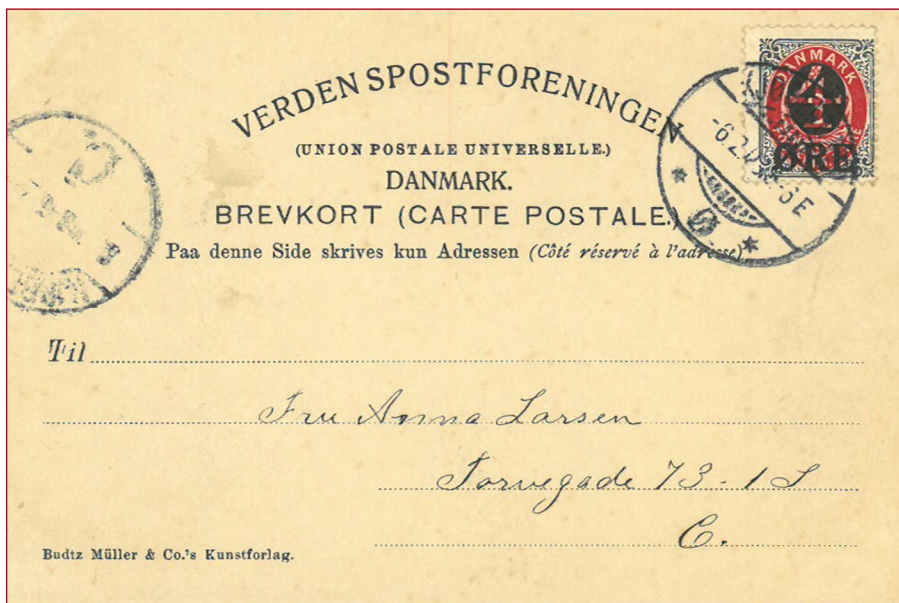 VERDENSPOSTFORENINGEN
(UNION POSTALE UNIVERSELLE.)
DANMARK.
BREVKORT (CARTE POSTALE.)
Paa denne Side skrives kun Adressen (Côté réservé à l'adresse)
DANMARK
4
ØRE
Til
Fru Anna Larsen
Torvegade 73 - 1 S
C.
Budtz Müller & Co.'s Kunstforlag.